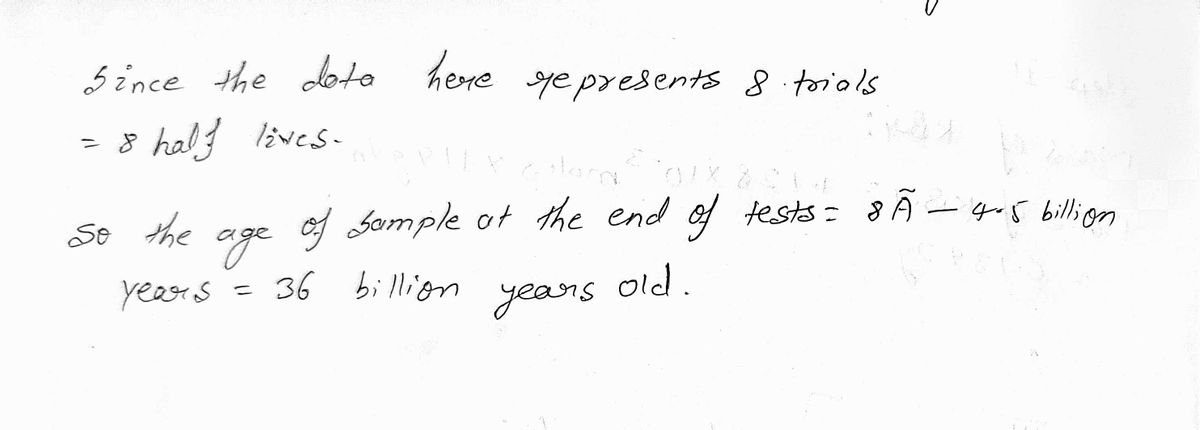 Since the data here represents 8 trials
= 8 half lives.
So the age of sample at the end of tests = 8 Ã — 4.5 billion
years = 36 billion years old.